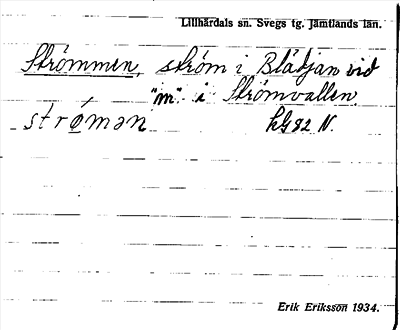 Lillhärdals sn. Svegs tg. Jämtlands län.
Strömmen, ström i Blädjan vid
"m" i Strömvallen.
strømən hG82 N.
Erik Eriksson 1934.